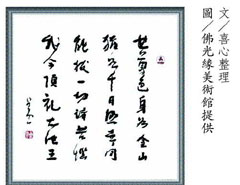 文／喜心整理
圖／佛光緣美術館提供
世尊遍身如金山
猶如千日照世間
能拔一切諸苦惱
我今頂禮大法王